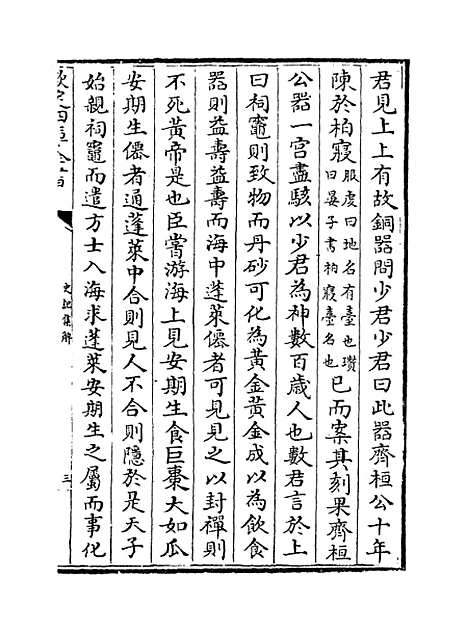 君見上上有故銅器問少君少君曰此器齊桓公十年
陳於柏寢服虔曰地名有臺也瓚曰晏子書柏寢臺名也已而案其刻果齊桓
公器一宫盡駭以少君為神數百歲人也數君言於上
曰祠竈則致物而丹砂可化為黃金黃金成以為飲食
器則益壽益壽而海中蓬萊僊者可見見之以封禪則
不死黃帝是也臣嘗游海上見安期生食巨棗大如瓜
安期生僊者通蓬萊中合則見人不合則隱於是天子
始親祠竈而遣方士入海求蓬萊安期生之屬而事化
欽定四庫全書
史記集解
三